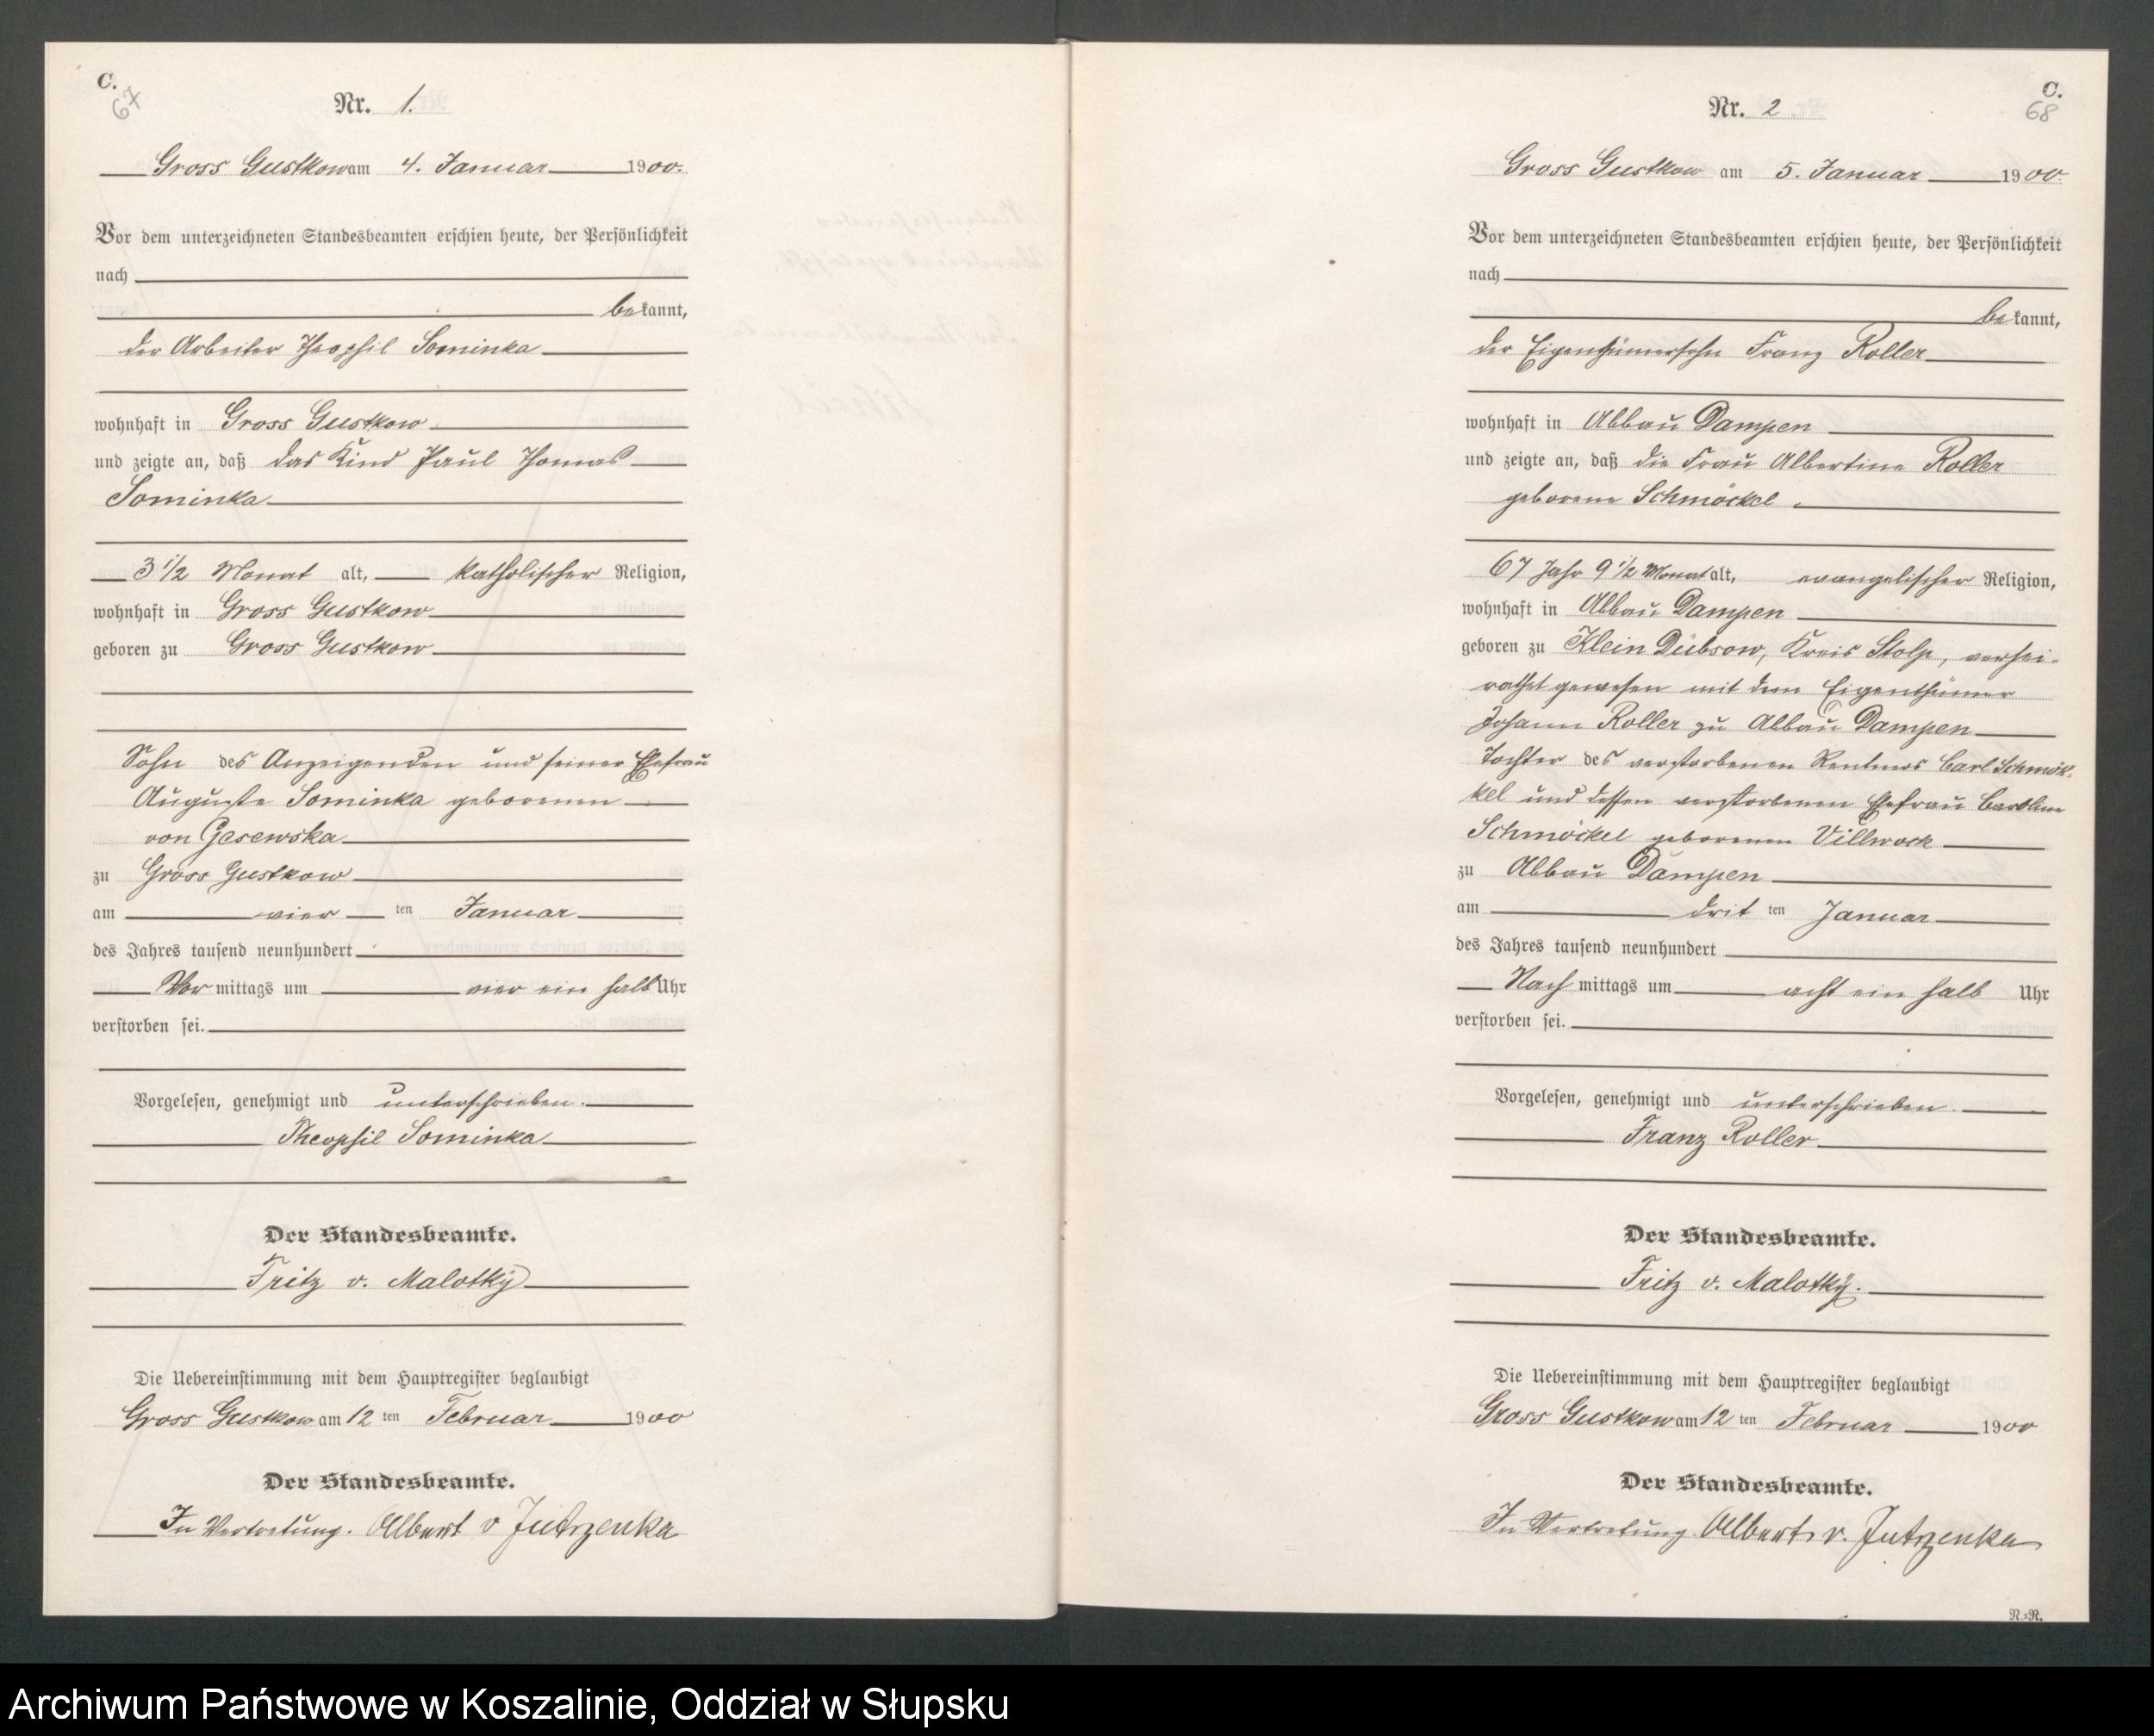 C.
67
Nr. 1.
Gross Gustkow am 4. Januar 1900.
Vor dem unterzeichneten Standesbeamten erschien heute, der Persönlichkeit
nach
bekannt,
der Arbeiter Theophil Sominka
wohnhaft in Gross Gustkow
und zeigte an, daß das Kind Paul Thomas
Sominka
3 1/2 Monat alt, katholischer Religion,
wohnhaft in Gross Gustkow
geboren zu Gross Gustkow
Sohn des Anzeigenden und seiner Ehefrau
Auguste Sominka geborenen
von Gesewska
zu Gross Gustkow
am vier ten Januar
des Jahres tausend neunhundert
Vor mittags um vier ein halb Uhr
verstorben sei.
Vorgelesen, genehmigt und unterschrieben.
Theophil Sominka
Der Standesbeamte.
Fritz v. Malotky
Die Uebereinstimmung mit dem Hauptregister beglaubigt
Gross Gustkow am 12 ten Februar 1900
Der Standesbeamte.
In Vertretung. Albert v Jutrzenka
C.
68
Nr. 2
Gross Gustkow am 5. Januar 1900.
Vor dem unterzeichneten Standesbeamten erschien heute, der Persönlichkeit
nach
bekannt,
der Eigenthümersohn Franz Roller
wohnhaft in Abbau Dampen
und zeigte an, daß die Frau Albertine Roller
geborene Schmöckel.
67 Jahr 9 1/2 Monat alt, evangelischer Religion,
wohnhaft in Abbau Dampen
geboren zu Klein Dübsow, Kreis Stolp, verhei-
rathet gewesen mit dem Eigenthümer
Johann Roller zu Abbau Dampen
Tochter des verstorbenen Rentners Carl Schmök-
kel und dessen verstorbenen Ehefrau Caroline
Schmöckel geborenen Villwock
zu Abbau Dampen
am drit ten Januar
des Jahres tausend neunhundert
Nach mittags um acht ein halb Uhr
verstorben sei.
Vorgelesen, genehmigt und unterschrieben.
Franz Roller
Der Standesbeamte.
Fritz v. Malotky.
Die Uebereinstimmung mit dem Hauptregister beglaubigt
Gross Gustkow am 12 ten Februar 1900
Der Standesbeamte.
In Vertretung. Albert v. Jutrzenka
N.=N.
Archiwum Państwowe w Koszalinie, Oddział w Słupsku